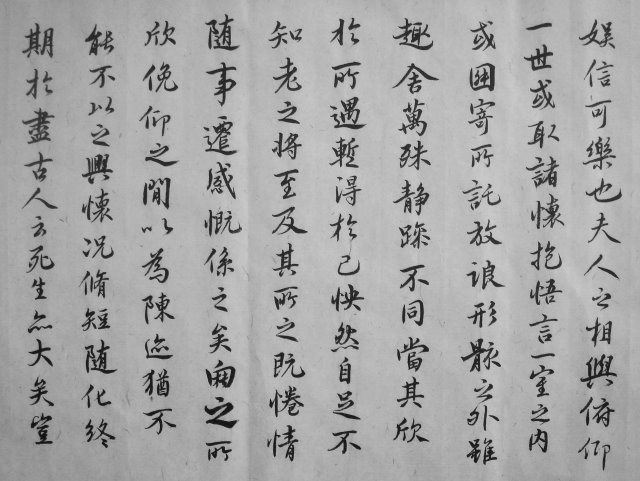 娱信可樂也夫人之相與俯仰
一世或取諸懷抱悟言一室之内
或因寄所託放浪形骸之外雖
趣舍萬殊静躁不同當其欣
於所遇暫得於己怏然自足不
知老之将至及其所之既惓情
随事遷感慨係之矣向之所
欣俛仰之閒以為陳迹猶不
能不以之興懷况脩短随化終
期於盡古人云死生亦大矣豈